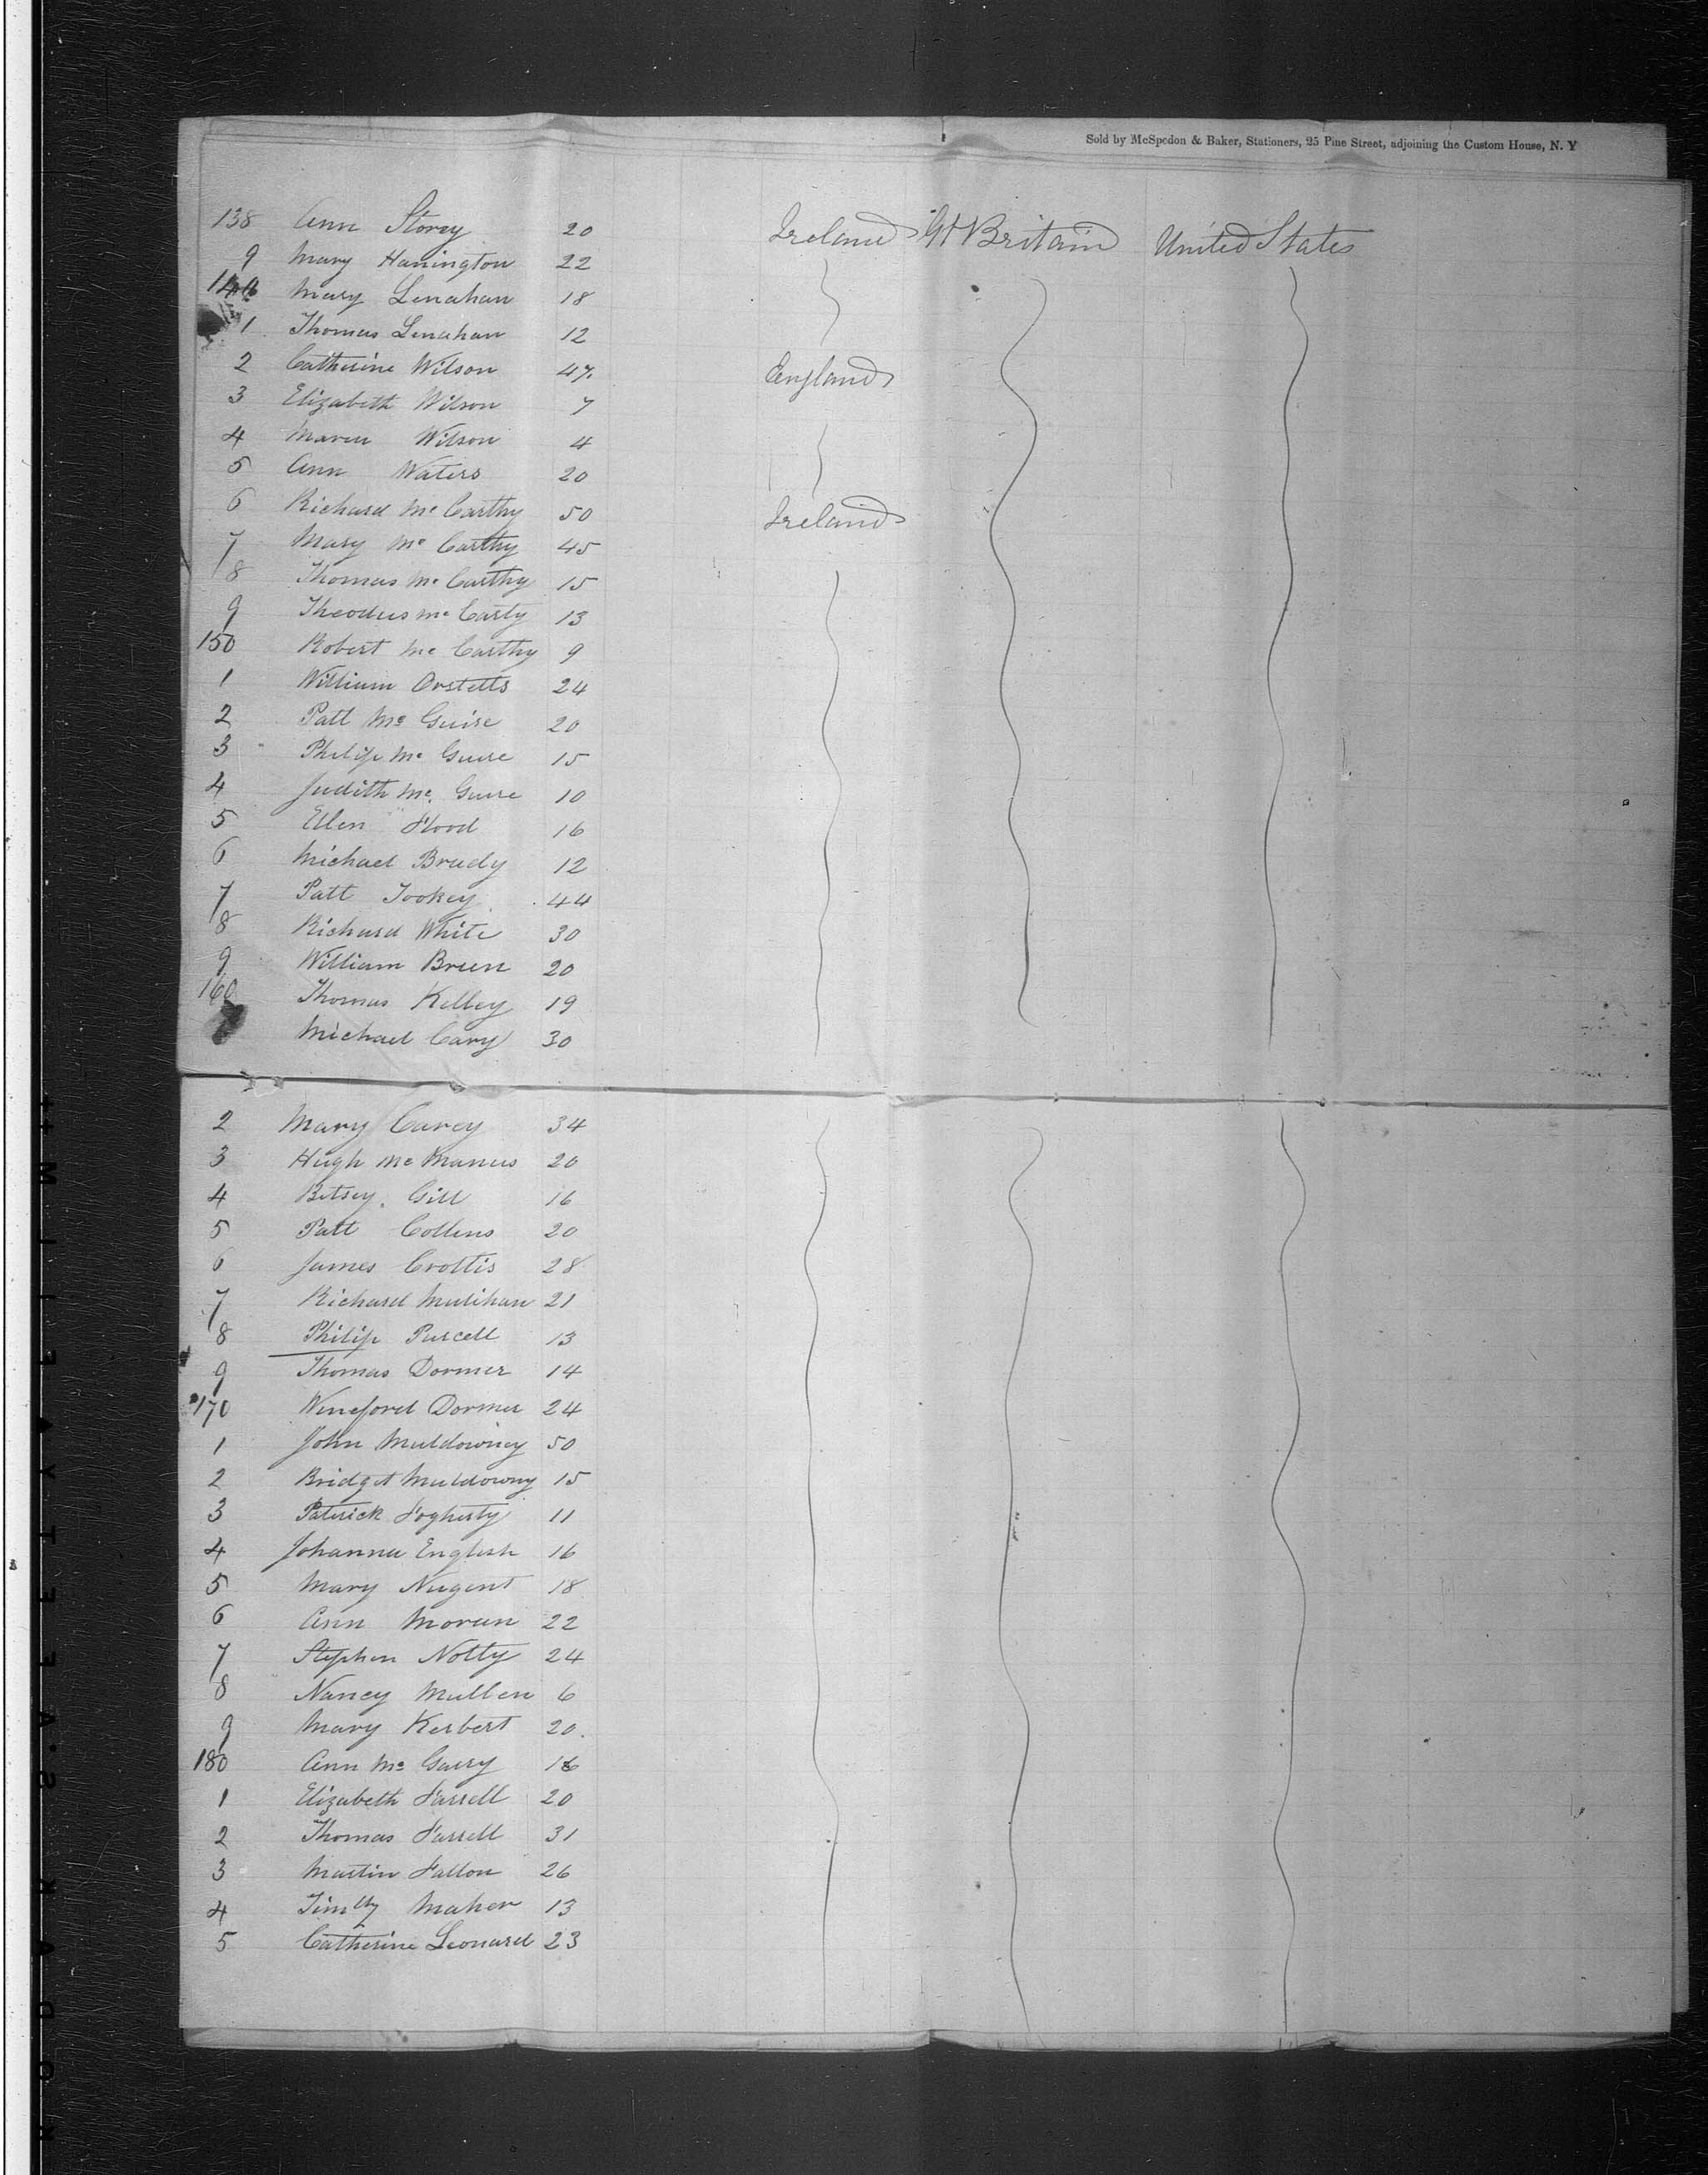 Sold by McSpedon & Baker, Stationers, 25 Pine Street, adjoining the Custom House, N. Y
138 Ann Storey 20 Ireland Gt Britain United States
9 Mary Hanington 22
140 Mary Lenahan 18
1 Thomas Lenahan 12
2 Catherine Wilson 47 England
3 Elizabeth Wilson 7
4 Maren Wilson 4
5 Ann Waters 20
6 Richard Mc Carthy 50 Ireland
7 Mary Mc Carthy 45
8 Thomas Mc Carthy 15
9 Theodus Mc Carty 13
150 Robert Mc Carthy 9
1 William Orstetts 24
2 Patt Mc Guise 20
3 Philip Mc Guire 15
4 Judith Mc Guire 10
5 Ellen Flood 16
6 Michael Brady 12
7 Patt Tookey 44
8 Richard White 30
9 William Breen 20
160 Thomas Kelley 19
Michael Cary 30
2 Mary Carey 34
3 Hugh Mc Manus 20
4 Betsey Gill 16
5 Patt Collens 20
6 James Crottis 28
7 Richard Mulihan 21
8 Philip Purcell 13
9 Thomas Dormer 14
170 Wineford Dormer 24
1 John Muldowney 50
2 Bridget Muldowny 15
3 Paterick Fogherty 11
4 Johanna English 16
5 Mary Nugent 18
6 Ann Moran 22
7 Stephen Notty 24
8 Nancy Mullen 6
9 Mary Kerbert 20
180 Ann Mc Garry 16
1 Elizabeth Farrell 20
2 Thomas Farrell 31
3 Martin Fallon 26
4 Timthy Maher 13
5 Catherine Leonard 23